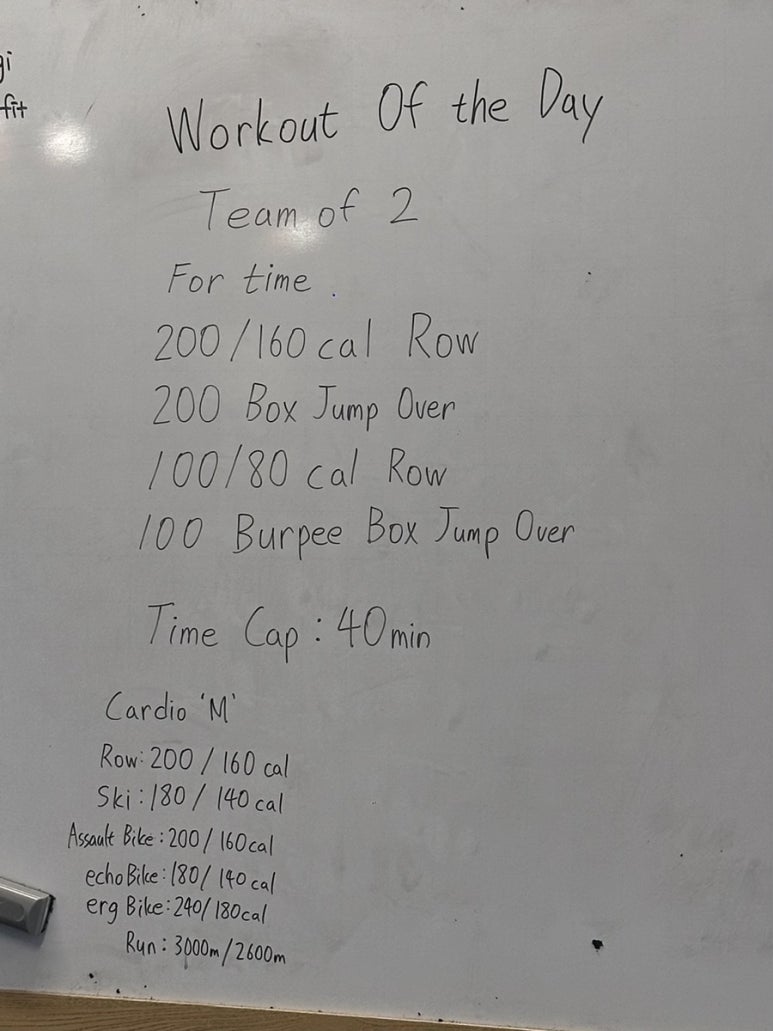 fit
Workout Of the Day
Team of 2
For time
200/160 cal Row
200 Box Jump Over
100/80 cal Row
100 Burpee Box Jump Over
Time Cap : 40min
Cardio 'M'
Row: 200 / 160 cal
Ski : 180 / 140 cal
Assault Bike : 200/160cal
echo Bike : 180/ 140 cal
erg Bike : 240/180cal
Run : 3000m/2600m